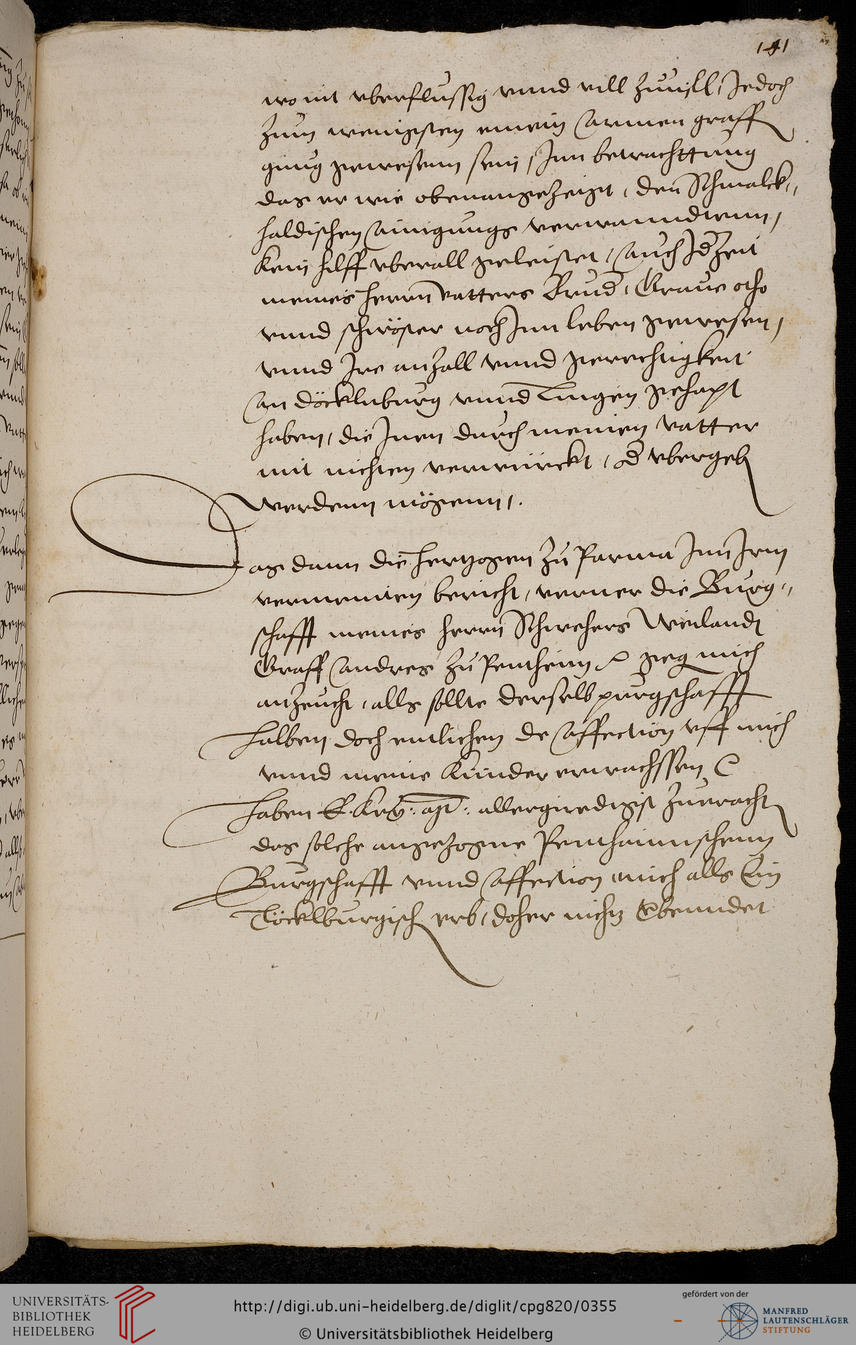 141
wo nit vberflussig vnnd vill zuuill, Jedoch
zum wenigsten einem Armen graff
gnug gewesenn sein, Inn betrachttung
das er wie obenangezeigt, den Schmalck-
haldischen Ainigungs verwanndtenn,
kein hilff vberall geleistet, Auch
meines herrn vatters Brud, Graue otho
vnnd schwöster noch Inn leben gewesen,
vnnd Ire anzall vnnd gerechtigkeit
an Döcklnburg vnnd Lingen gehapt
haben, die Inen durch meinen vatter
mit nichten verwürckt, od vbergeb
werdenn mögenn,.
Das dann die hertzogen zu Parma Inn Irm
vermeinten bericht, verner die Burg-
schafft meines herrn Schwehers Weilandt
Graff Andres zu Pentheim geg mich
anzeucht, alls sollte derselb purgschafft
halben doch entlichen de affection vff mich
vnnd meine Kinder erwachssen
haben E. Kay: allergnedigist zuuracht
das solche angezogne Penthaimischenn
Burgschafft vnnd Affection mich alls Ein
Töcklburgisch erb, doher nichtz
UNIVERSITÄTS-
BIBLIOTHEK
HEIDELBERG
http://digi.ub.uni-heidelberg.de/diglit/cpg820/0355
© Universitätsbibliothek Heidelberg
gefördert von der
MANFRED
LAUTENSCHLÄGER
STIFTUNG